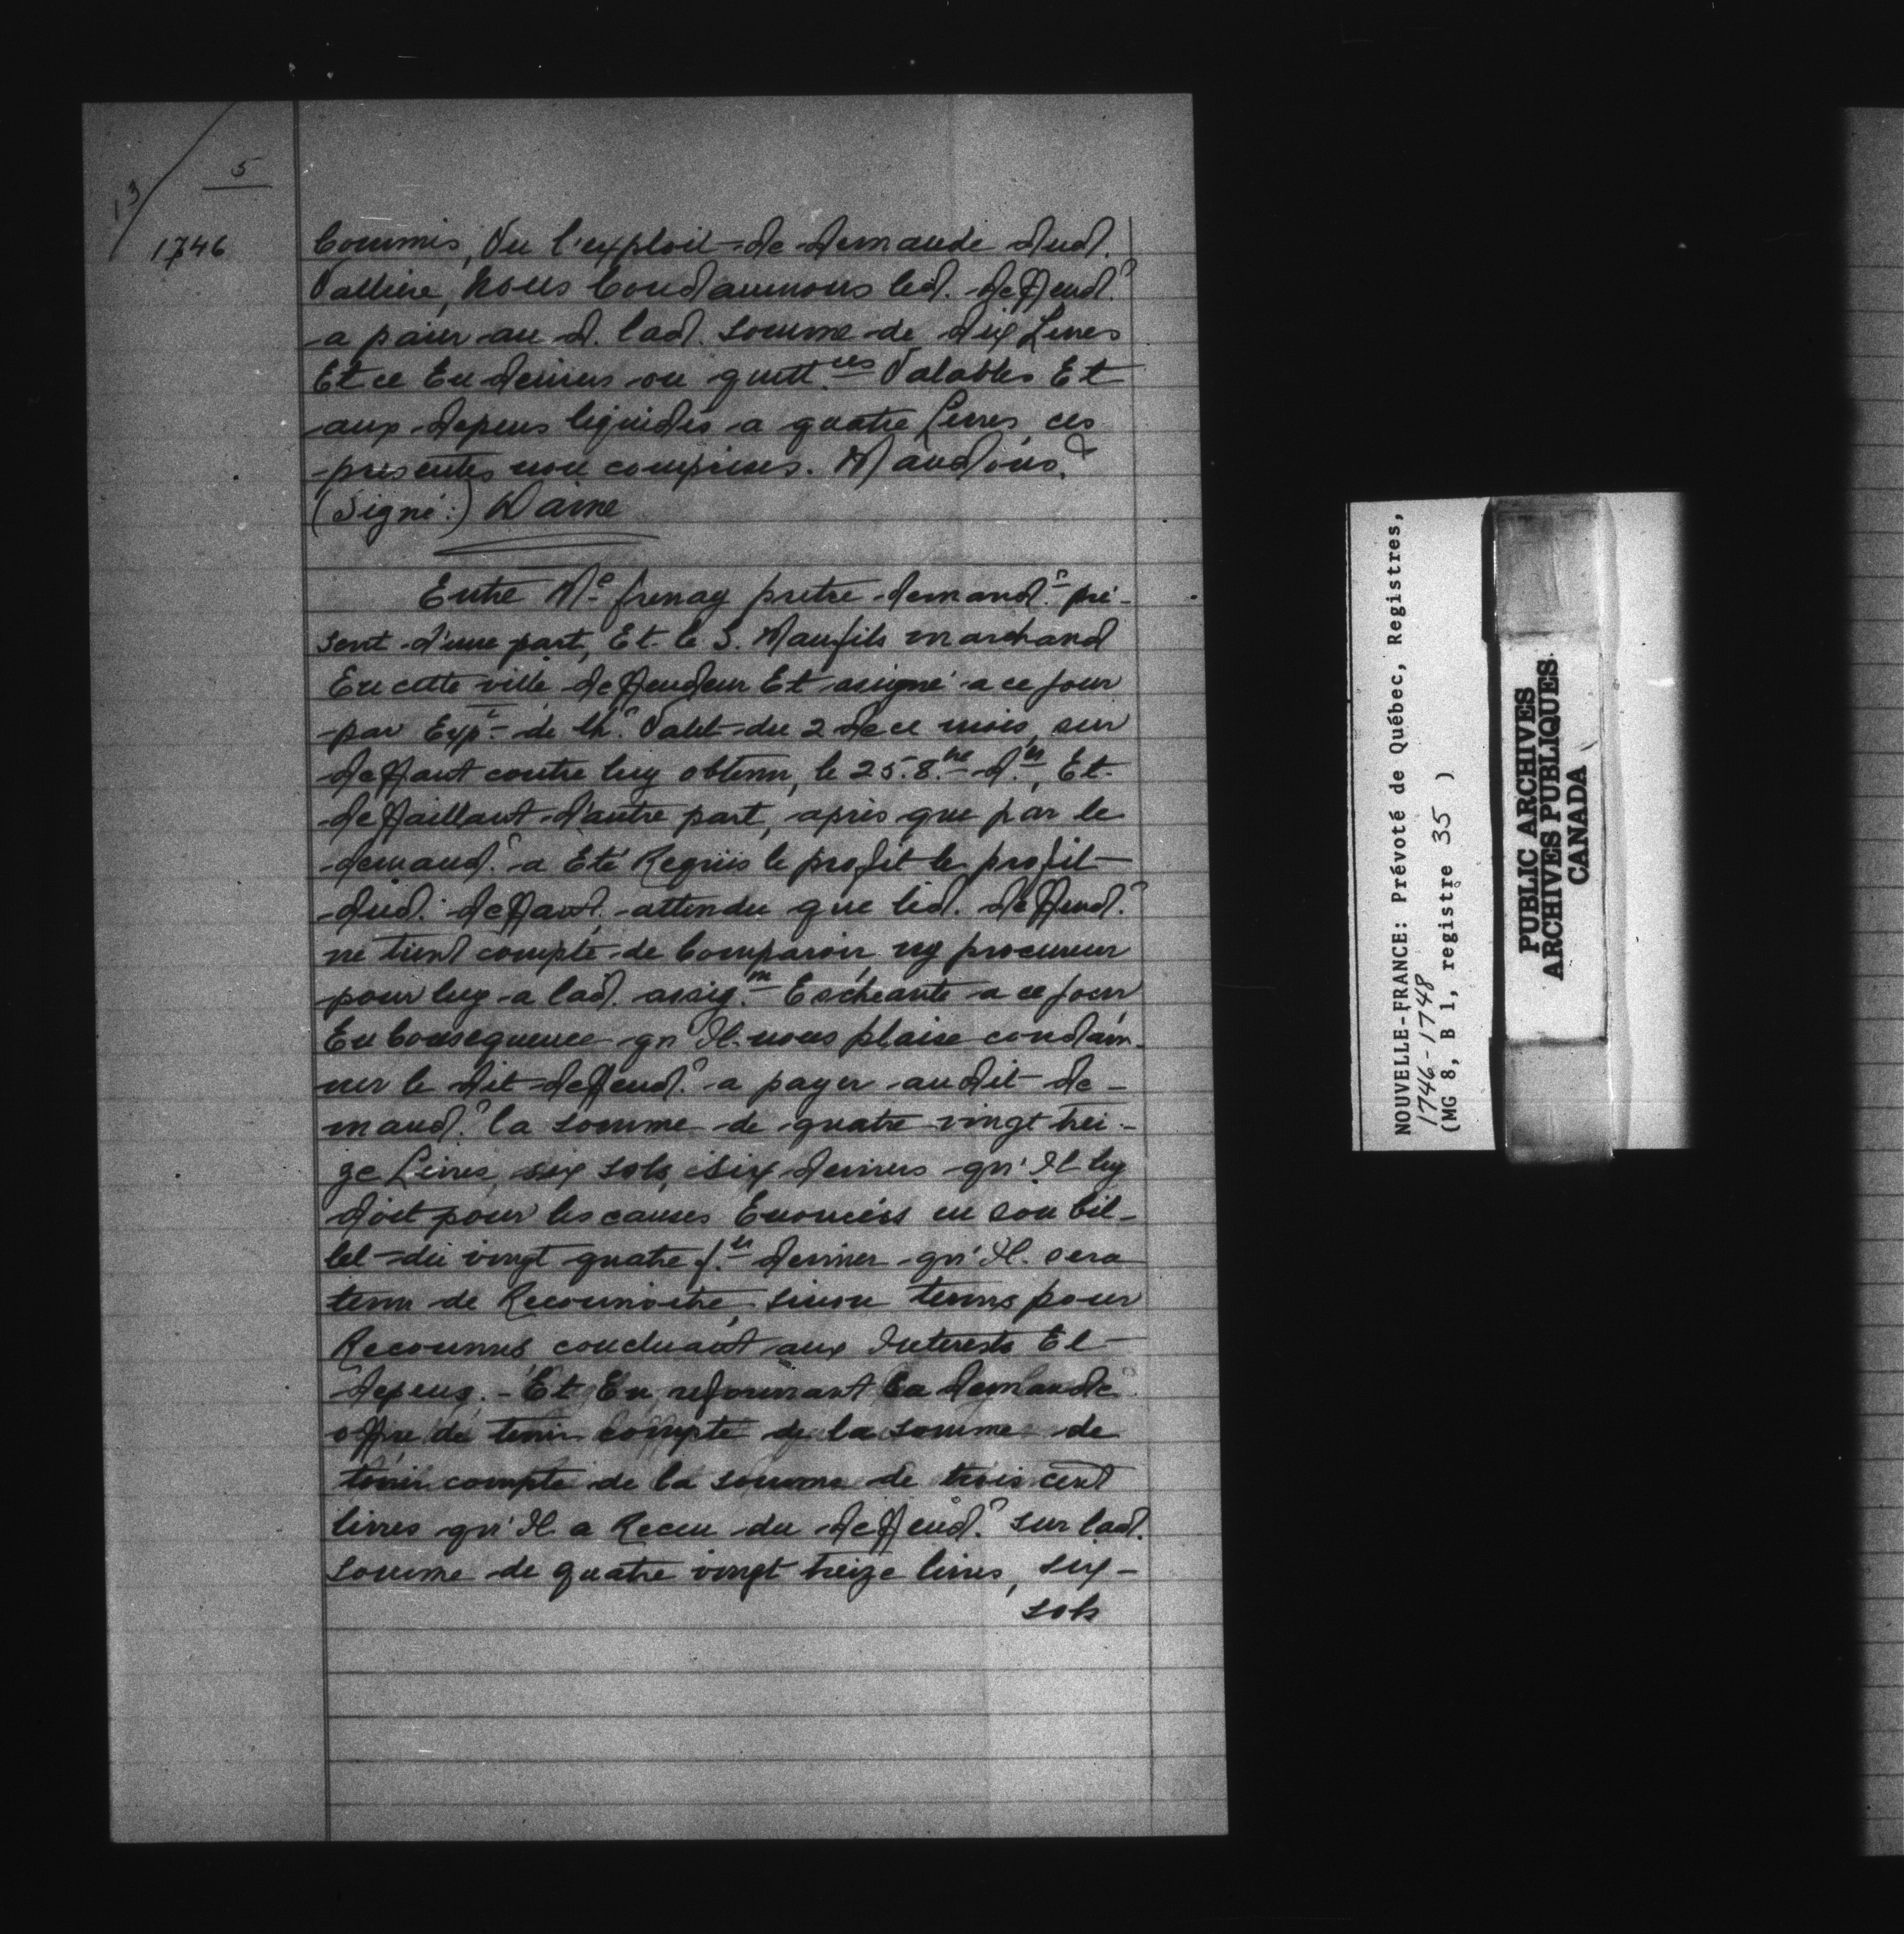 13/ 5
1746
Commis, Vu l'exploit de demande dud.
Vallière, Nous Condamnons led. deffend.r
a païer au d. lad. somme de dix Livres
Et ce En deniers ou quitt.ces Valables Et
aux depens liquidés a quatre Livres, ces
presentes non comprises. Mandons, &
(Signé:) Daine
Entre M.e frenay pretre demand.r pré-
sent d'une part, Et le S. Maufils marchand
En cette ville deffendeur Et assigné a ce jour
par Exp.t de ch.r Valet du 2 de ce mois, sur
deffaut contre luy obtenu, le 25. 8.bre d.er, Et
deffaillant d'autre part, après que par le
demand.r a Eté Requis le profit le profit
dud. deffaut, attendu que led. deffend.r
ne tient compte de Comparoir ny procureur
pour luy a lad. assig.on Escheante a ce jour
En Consequence qu'Il nous plaise condam-
ner le dit deffend.r a payer au dit de-
mand.r la somme de quatre vingt trei-
ze Livres, six sols, six deniers qu'Il luy
doit pour les causes Enoncées en son bil-
let du vingt quatre f.er dernier qu'Il sera
tenu de Reconnoitre, sinon tenus pour
Reconnus concluant aux Interests Et
depens. - Et En reformant la demande
offre de tenir compte de la somme de
tenir compte de la somme de trois cent
livres qu'Il a Receu du deffend.r sur lad.
somme de quatre vingt treize livres, six-
sols
NOUVELLE-FRANCE: Prévoté de Québec, Registres,
1746-1748
(MG 8, B 1, registre 35 )
PUBLIC ARCHIVES
ARCHIVES PUBLIQUES
CANADA